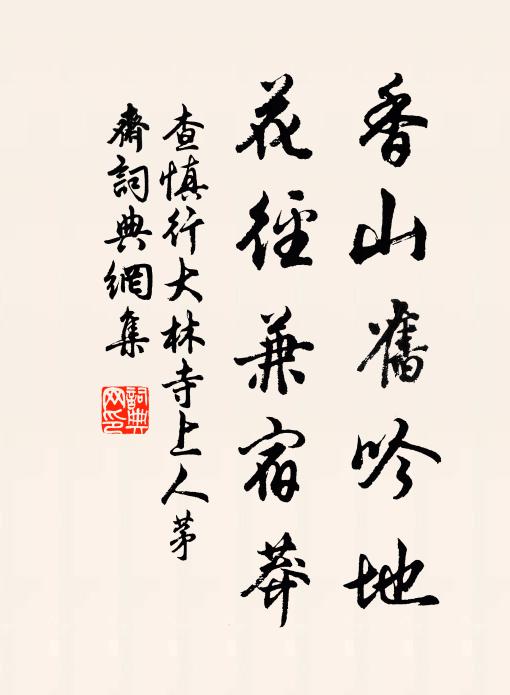 香山舊吟地
花徑兼宿莽
查慎行大林寺上人茅
齋詞典網集
詞典
网印